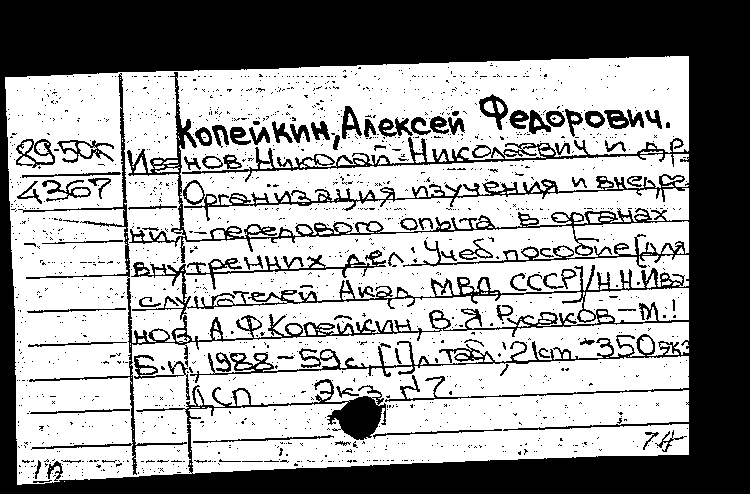 Копейкин, Алексей Федорович.
89-50К Иванов, Николай Николаевич и др.
4367 Организация изучения и внедре-
ния передового опыта в органах
внутренних дел: Учеб. пособие [для
слушателей Акад. МВД СССР] / Н.Н. Ива-
нов, А.Ф. Копейкин, В.Я. Русаков. - М.:
Б.и., 1988. - 59 с., [1] л. табл.; 21 см. - 350 экз
ДСП Экз. №7.